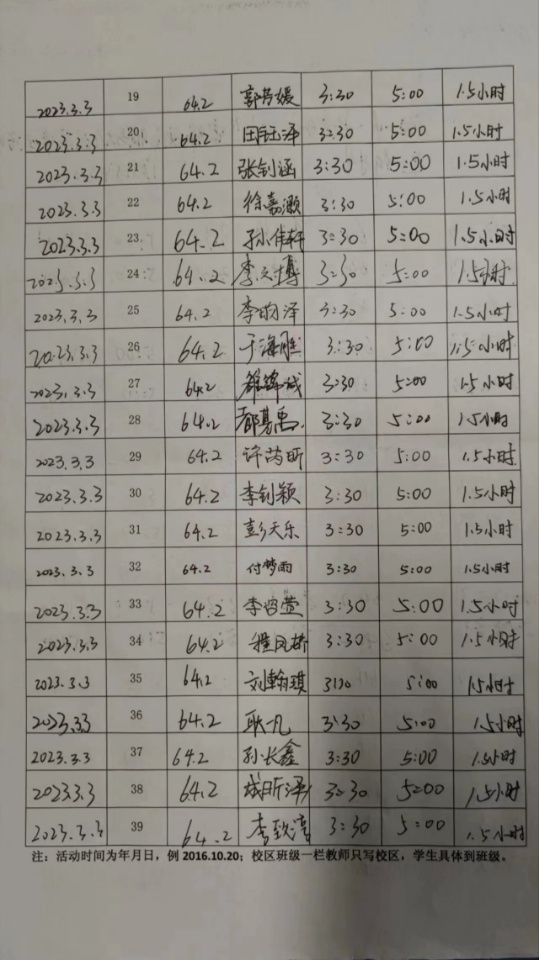 2023.3.3 19 64.2 郭芳媛 3:30 5:00 1.5小时
2023.3.3 20 64.2 田钰泽 3:30 5:00 1.5小时
2023.3.3 21 64.2 张钊涵 3:30 5:00 1.5小时
2023.3.3 22 64.2 徐嘉灏 3:30 5:00 1.5小时
2023.3.3 23 64.2 孙伟轩 3:30 5:00 1.5小时
2023.3.3 24 64.2 李文博 3:30 5:00 1.5小时
2023.3.3 25 64.2 李昀泽 3:30 5:00 1.5小时
2023.3.3 26 64.2 于海胜 3:30 5:00 1.5小时
2023.3.3 27 64.2 3:30 5:00 1.5小时
2023.3.3 28 64.2 3:30 5:00 1.5小时
2023.3.3 29 64.2 许芮昕 3:30 5:00 1.5小时
2023.3.3 30 64.2 李钊颖 3:30 5:00 1.5小时
2023.3.3 31 64.2 彭天乐 3:30 5:00 1.5小时
2023.3.3 32 64.2 付梦雨 3:30 5:00 1.5小时
2023.3.3 33 64.2 3:30 5:00 1.5小时
2023.3.3 34 64.2 程凤娇 3:30 5:00 1.5小时
2023.3.3 35 64.2 刘翰琪 3:30 5:00 1.5小时
2023.3.3 36 64.2 耿凡 3:30 5:00 1.5小时
2023.3.3 37 64.2 孙长鑫 3:30 5:00 1.5小时
2023.3.3 38 64.2 3:30 5:00 1.5小时
2023.3.3 39 64.2 3:30 5:00 1.5小时
注：活动时间为年月日，例 2016.10.20；校区班级一栏教师只写校区，学生具体到班级。